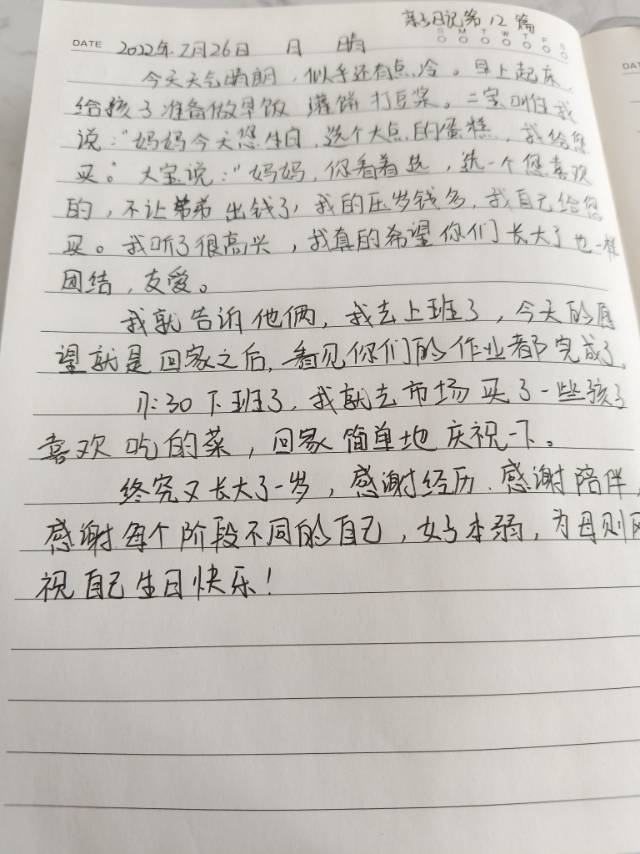 亲子日记第12篇
DATE 2022年7月26日 月 晴
S M T W T F S
今天天气晴朗，似乎还有点冷。早上起床，
给孩子准备做早饭 灌饼 打豆浆。二宝叫住我
说："妈妈今天您生日，选个大点的蛋糕，我给您
买。"大宝说："妈妈，你看着选，选一个您喜欢
的，不让弟弟出钱了，我的压岁钱多，我自己给您
买。我听了很高兴，我真的希望你们长大了也一样
团结，友爱。
我就告诉他俩，我去上班了，今天的愿
望就是回家之后，看见你们的作业都完成了。
11:30下班了，我就去市场买了一些孩子
喜欢吃的菜，回家简单地庆祝一下。
终究又长大了一岁，感谢经历．感谢陪伴，
感谢每个阶段不同的自己，女本弱，为母则
祝自己生日快乐！
DAT